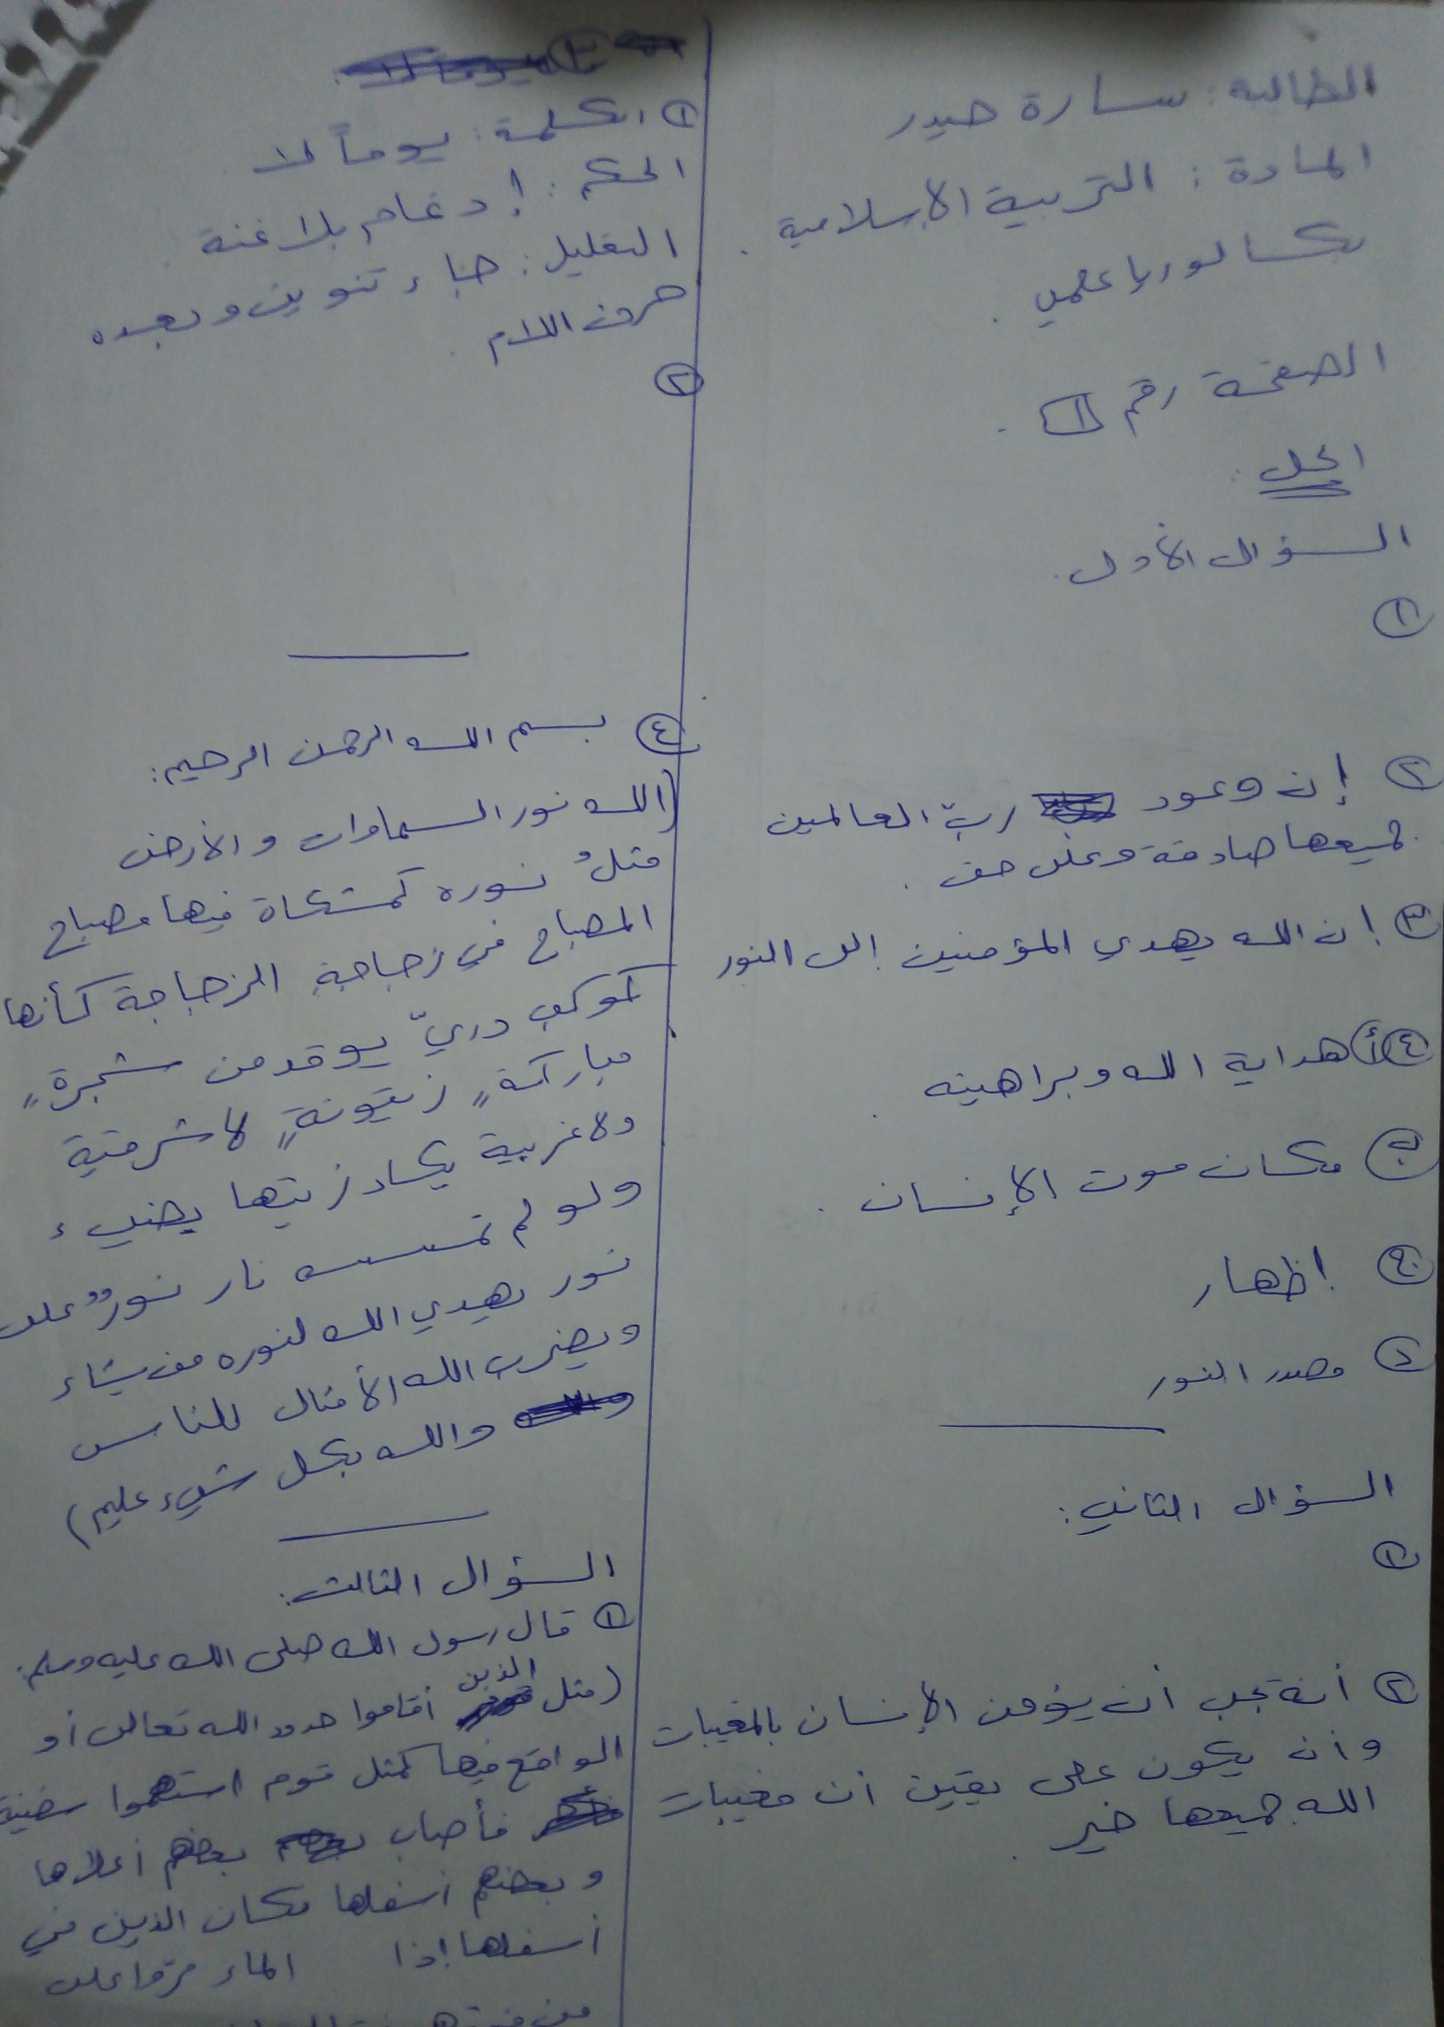 الطالبة: سارة حيدر
المادة: التربية الإسلامية.
بكالوريا علمي.
الصفحة رقم ١.
الحل:
السؤال الأول.
١
٢ إن وعود رب العالمين
جميعها صادقة وعلى حق.
٣ إن الله يهدي المؤمنين إلى النور
٤ أ هداية الله وبراهينه.
ب مكان موت الإنسان.
ج إظهار
د مصدر النور
السؤال الثاني:
١
٢ أنه يجب أن يؤمن الإنسان بالمغيبات
وأن يكون على يقين أن مغيبات
الله جميعها خير.
١ الكلمة: يوماً لا
الحكم: إدغام بلا غنة.
التعليل: جاء تنوين وبعده
حرف اللام.
٢
٤ بسم الله الرحمن الرحيم:
(الله نور السماوات والأرض
مثلُ نوره كمشكاة فيها مصباح
المصباح في زجاجةٍ الزجاجة كأنها
كوكب دريّ يوقد من شجرةٍ
مباركةٍ زيتونةٍ لا شرقية
ولا غربية يكاد زيتها يضيء
ولو لم تمسسه نار نورٌ على
نور يهدي الله لنوره من يشاء
ويضرب الله الأمثال للناس
والله بكل شيء عليم)
السؤال الثالث:
١ قال رسول الله صلى الله عليه وسلم:
(مثل الذين أقاموا حدود الله تعالى أو
الواقع فيها كمثل قوم استهموا سفينة
فأصاب بعضهم أعلاها
وبعضهم أسفلها فكان الذين في
أسفلها إذا الماء مروا على